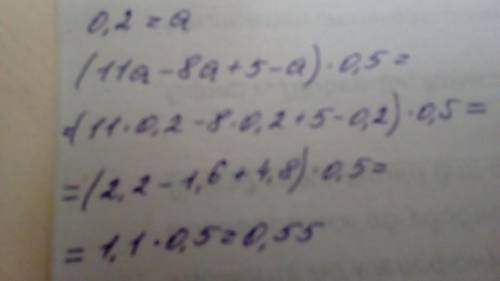 0,2 = a
(11a - 8a + 5 - a) · 0,5 =
= (11 · 0,2 - 8 · 0,2 + 5 - 0,2) · 0,5 =
= (2,2 - 1,6 + 4,8) · 0,5 =
= 1,1 · 0,5 = 0,55